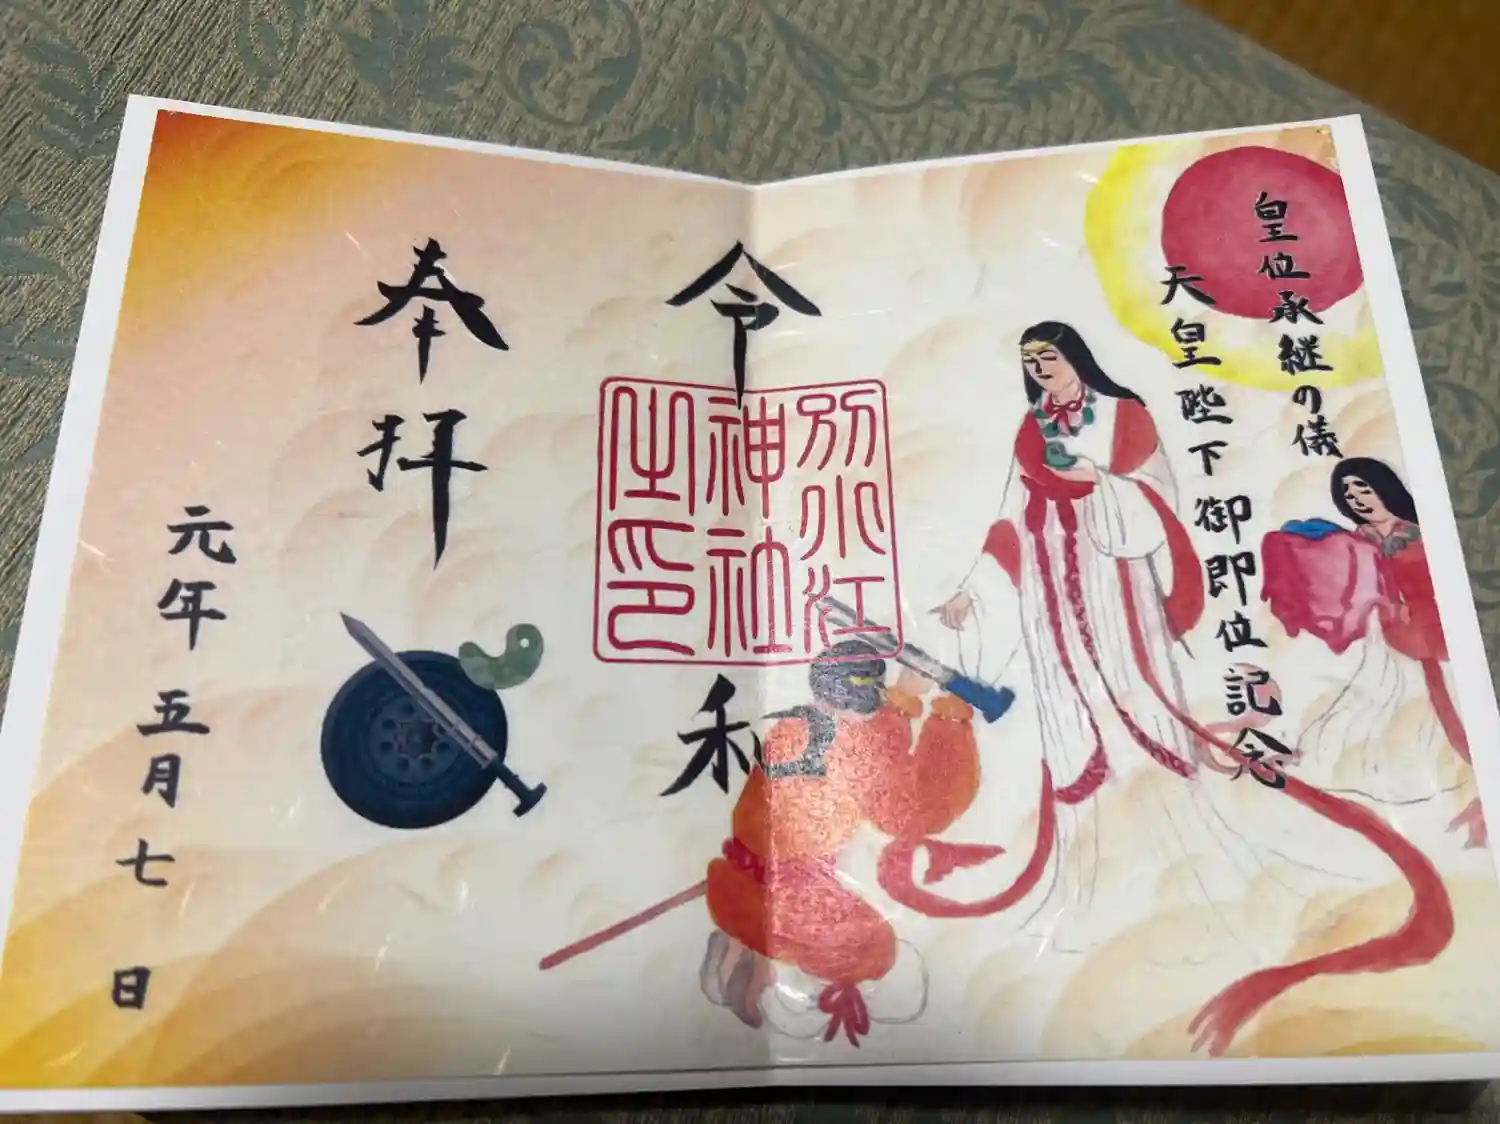 皇位承継の儀
天皇陛下御即位記念
令和
別小江
神社
之印
奉拝
元年五月七日